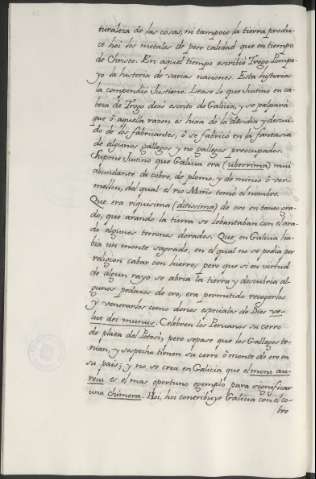 turaleza de las cosas, ni tampoco la tierra produ-
ce hoi los metales de peor calidad que en tiempo
de Christo. En aquel tiempo escribió Trogo Pompe-
yo la historia de varias naciones. Esta historia
la compendió Justino. Lease lo que Justino en ca-
beza de Trogo dexó escrito de Galicia, y se palpará
que ó aquella razon es hija de la desidia y descui-
do de los fabricantes, ó se fabricó en la fantasía
de algunos gallegos y no gallegos preocupados.
Supone Justino que Galicia era (uberrima) mui
abundante de cobre, de plomo, y de minio ó ver-
mellon, del qual el rio Miño tomó el nombre.
Que era riquisima (ditissima) de oro en tanto gra-
do, que arando la tierra se levantaban con el ara-
do algunos terrones dorados. Que en Galicia ha-
bia un monte sagrado, en el qual no se podia por
religion cabar con hierro; pero que si en virtud
de algun rayo se abria la tierra y descubria al-
gunos pedazos de oro, era permitido recogerlos
y venerarlos como dones especiales de Dios ve-
lut dei munus. Celebren los Peruanos su cerro
de plata del Potosi, pero sepase que los Gallegos te-
nian, y sospecho tienen su cerro ó monte de oro en
su pais; y no se crea en Galicia que el mons au-
reus es el mas oportuno exemplo para significar
una chimera. Hoi, hoi contribuye Galicia con el co-
bre